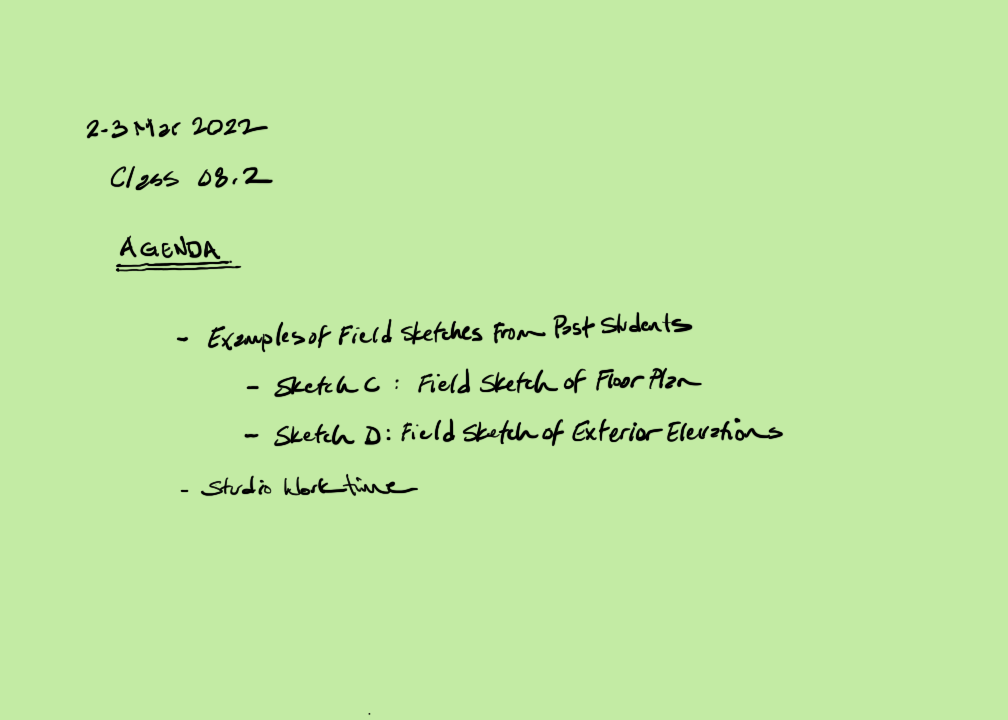 2-3 Mar 2022
Class 08.2
AGENDA
- Examples of Field Sketches From Past Students
- Sketch C : Field Sketch of Floor Plan
- Sketch D : Field Sketch of Exterior Elevations
- Studio Work time